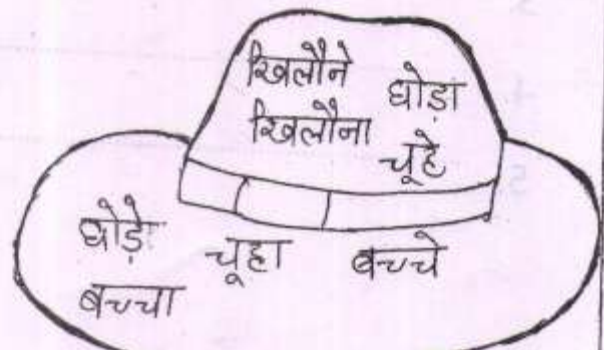 खिलौने घोड़ा
खिलौना चूहे
घोड़े चूहा बच्चे
बच्चा